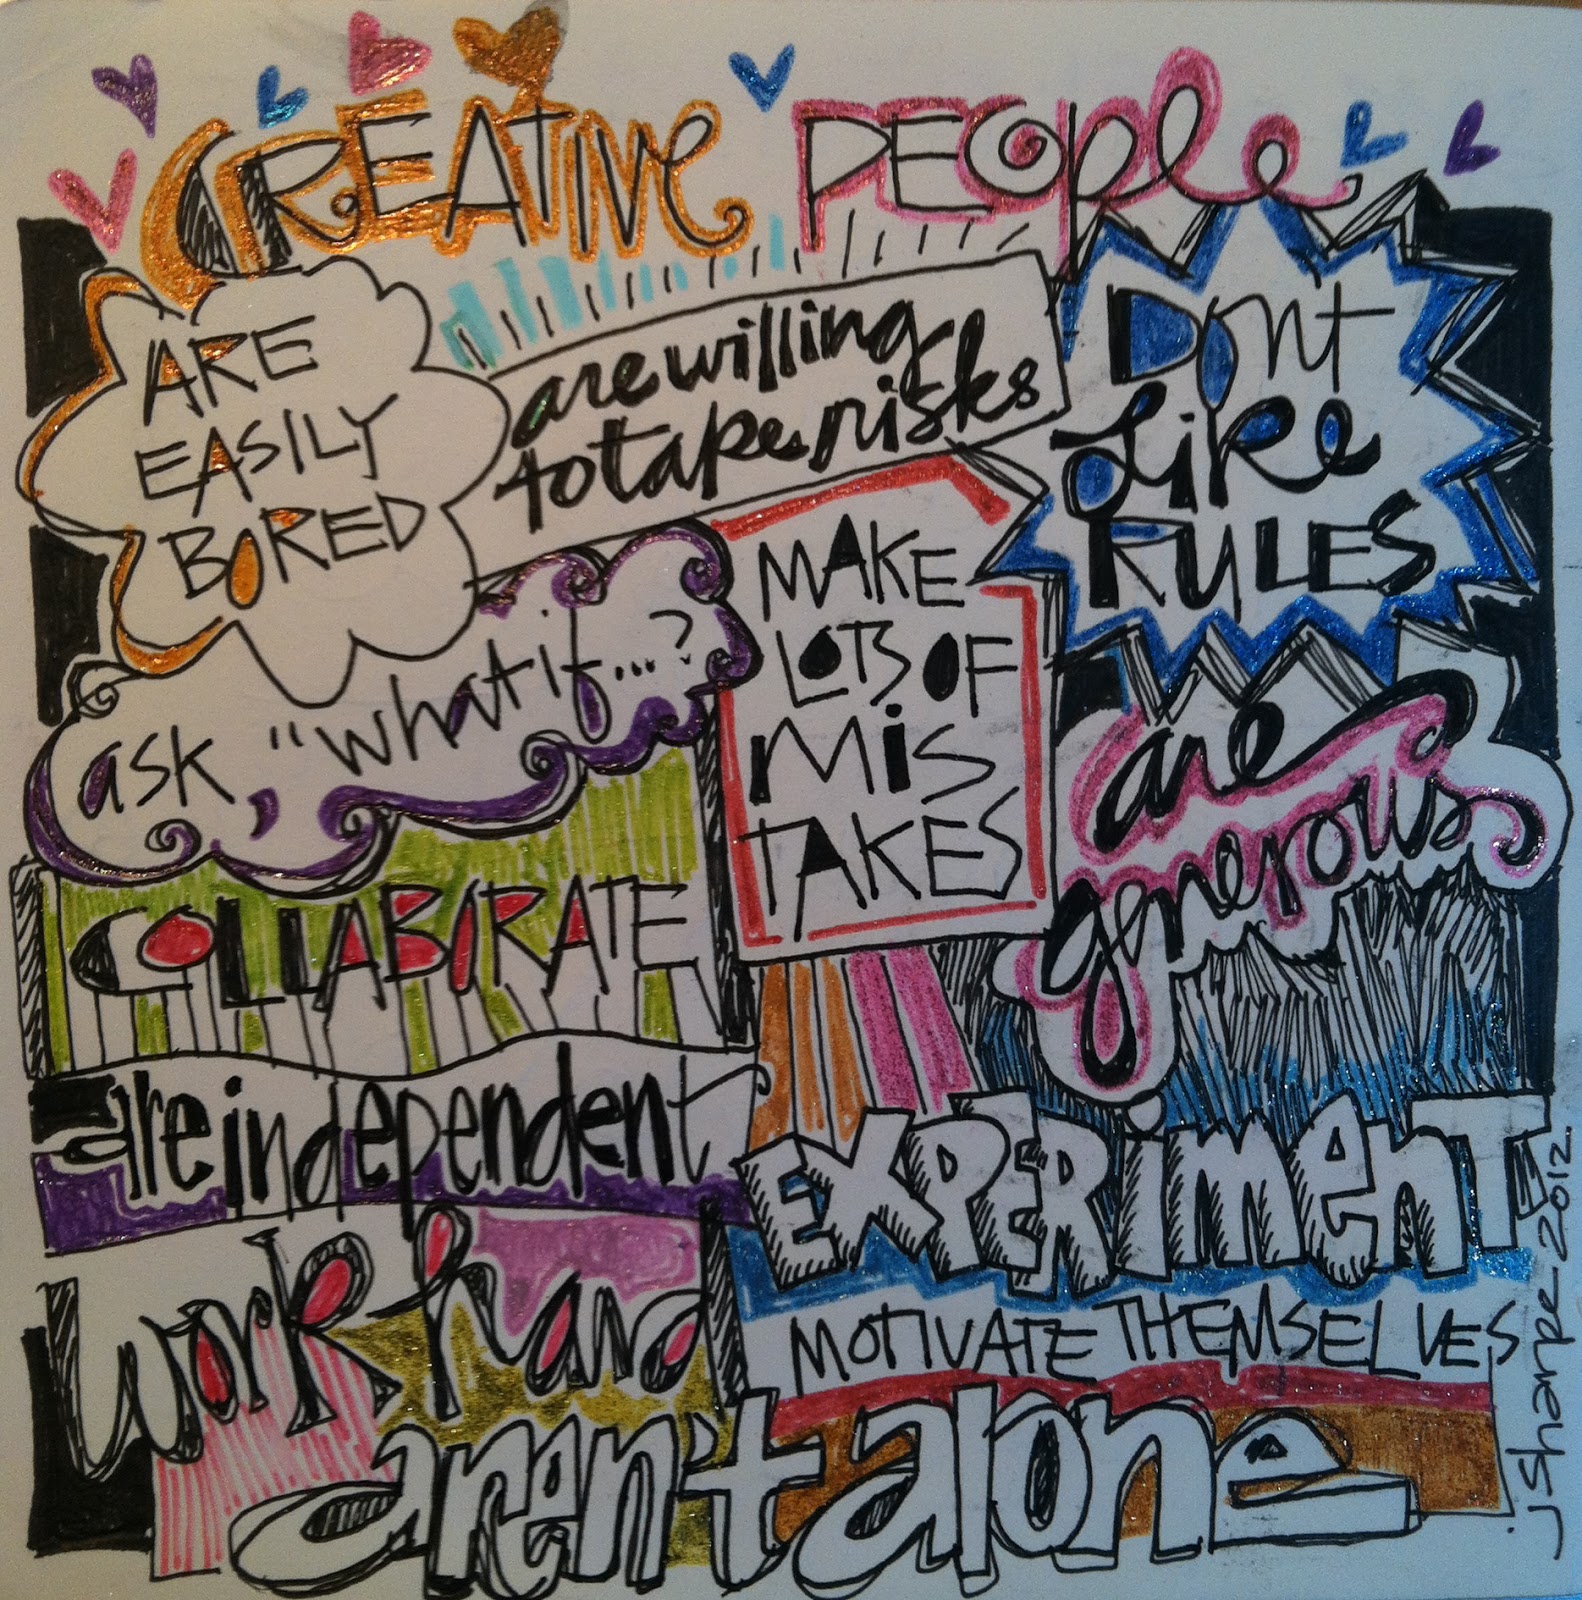 CREATIVE PEOPLE
ARE
EASILY
BORED
are willing
to take risks
DONT
Like
RULES
ask, "what if...?
MAKE
LOTS OF
MIS
TAKES
are
generous
COLLABORATE
are independent
EXPERIMENT
work hard
MOTIVATE THEMSELVES
aren't alone
j Sharpe-2012